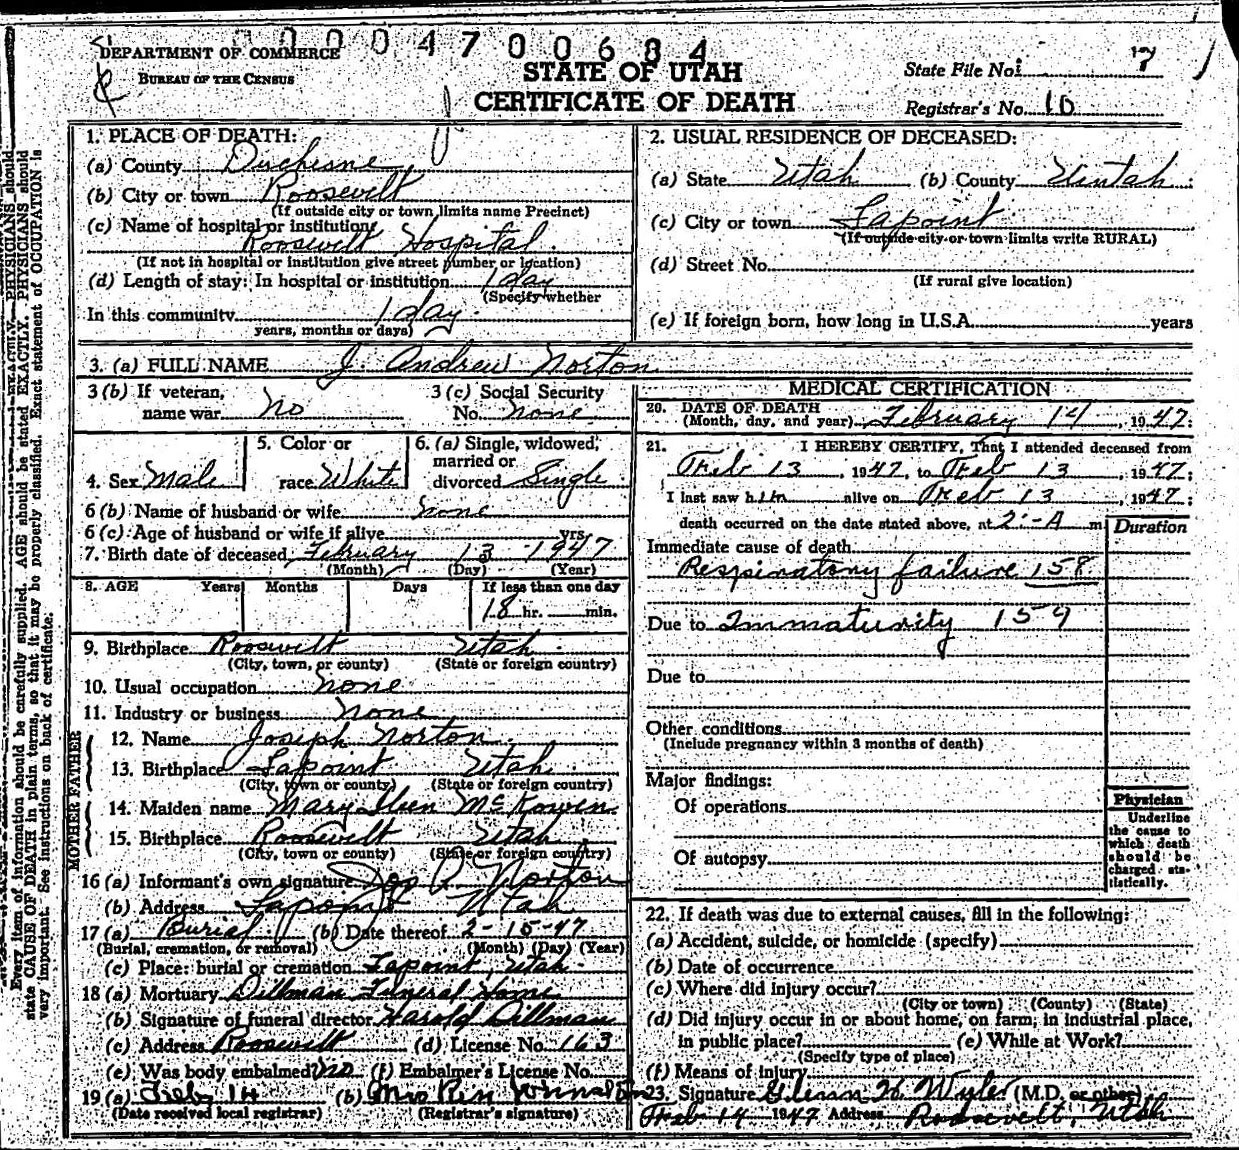 0004700684
DEPARTMENT OF COMMERCE
BUREAU OF THE CENSUS
STATE OF UTAH
CERTIFICATE OF DEATH
State File No. 7
Registrar's No. 10
Every item of information should be carefully supplied. AGE should be stated EXACTLY. PHYSICIANS should
state CAUSE OF DEATH in plain terms, so that it may be properly classified. Exact statement of OCCUPATION is
very important. See instructions on back of certificate.
1. PLACE OF DEATH:
(a) County Duchesne
(b) City or town Roosevelt
(If outside city or town limits name Precinct)
(c) Name of hospital or institution:
Roosevelt Hospital.
(If not in hospital or institution give street number or location)
(d) Length of stay: In hospital or institution 1 day
(Specify whether
In this community 1 day.
years, months or days)
2. USUAL RESIDENCE OF DECEASED:
(a) State Utah (b) County Uintah
(c) City or town Lapoint
(If outside city or town limits write RURAL)
(d) Street No.
(If rural give location)
(e) If foreign born, how long in U.S.A. years
3. (a) FULL NAME J. Andrew Norton
3 (b) If veteran,
name war No
3 (c) Social Security
No. none
4. Sex Male
5. Color or
race White
6. (a) Single, widowed,
married or
divorced Single
6 (b) Name of husband or wife none
6 (c) Age of husband or wife if alive yrs.
7. Birth date of deceased February 13 1947
(Month) (Day) (Year)
8. AGE Years Months Days If less than one day
18 hr. min.
9. Birthplace Roosevelt Utah
(City, town, or county) (State or foreign country)
10. Usual occupation none
11. Industry or business none
FATHER
12. Name Joseph Norton
13. Birthplace Lapoint Utah
(City, town or county) (State or foreign country)
MOTHER
14. Maiden name Mary McKowen
15. Birthplace Roosevelt Utah
(City, town or county) (State or foreign country)
16 (a) Informant's own signature Jos P. Norton
(b) Address Lapoint Utah
17 (a) Burial (b) Date thereof 2-15-47
(Burial, cremation, or removal) (Month) (Day) (Year)
(c) Place: burial or cremation Lapoint, Utah
18 (a) Mortuary Dillman Funeral Home
(b) Signature of funeral director Harold Dillman
(c) Address Roosevelt (d) License No. 163
(e) Was body embalmed? no (f) Embalmer's License No.
19 (a) Feb. 14 (b) Mrs Johnston
(Date received local registrar) (Registrar's signature)
MEDICAL CERTIFICATION
20. DATE OF DEATH
(Month, day, and year) February 14, 1947;
21. I HEREBY CERTIFY, That I attended deceased from
Feb 13, 1947, to Feb 13, 1947;
I last saw him alive on Feb 13 1947;
death occurred on the date stated above, at 2:-A m
Duration
Immediate cause of death
Respiratory failure 158
Due to Immaturity 159
Due to
Other conditions
(Include pregnancy within 3 months of death)
Major findings:
Of operations
Of autopsy
Physician
Underline
the cause to
which death
should be
charged sta-
tistically.
22. If death was due to external causes, fill in the following:
(a) Accident, suicide, or homicide (specify)
(b) Date of occurrence
(c) Where did injury occur?
(City or town) (County) (State)
(d) Did injury occur in or about home, on farm, in industrial place,
in public place? (e) While at Work?
(Specify type of place)
(f) Means of injury
23. Signature H. Wyler (M.D. or other)
Feb 14 1947 Address Roosevelt, Utah